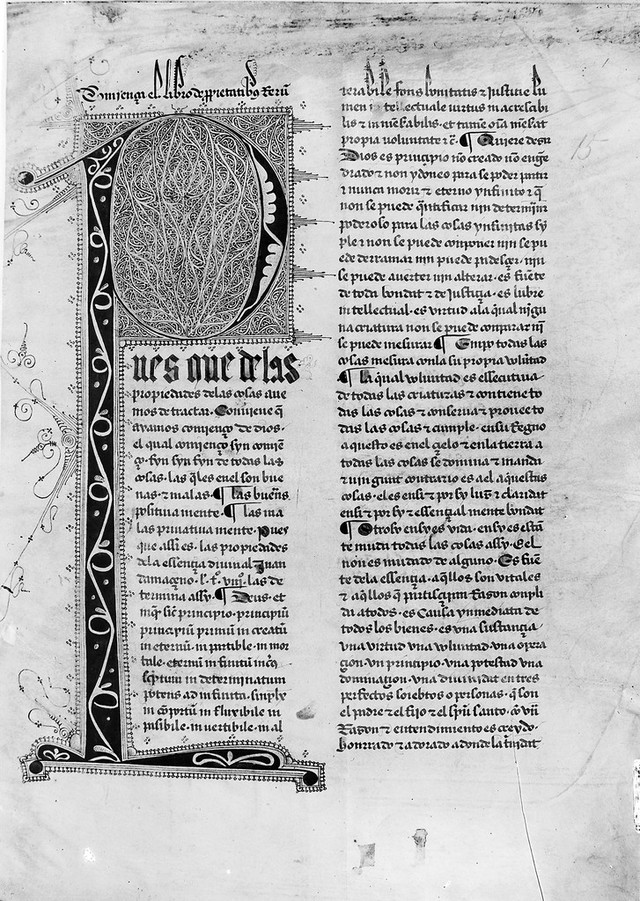 Comiença el libro de propietatibꝫ rerũ
Pues que delas
propiedades delas cosas aue
mos de tractar. Conviene q̃
ayamos comienço de dios.
el qual comienço syn comiẽ
ço. fyn syn fyn de todas las
cosas. las q̃les en el son bue
nas & malas. ¶ las buẽas
positiua mente. ¶ las ma
las priuatiua mente. Pues
que assi es. las propiedades
dela essençia diuinal Juan
damaçeno. l.º i.º viijº. las de
termina assy. ¶ Deus. et
principio. principiũ
principiũ primũ in creatũ
in eternũ. in putabile. in mor
tale. eternũ in finitũ
in determinatum
potens ad in finita. simplex
in corpõrũ in fluxibile in
pasibile. in vertibile. in al
terabile fons bonitatis & justiçie lu
men intellectuale uirtus in acresabi
lis & in mẽsabilis. et tamẽ oĩa mẽsat
propia voluntate & c̃. ¶ Quiere desir
Dios es principio nõ creado nõ enge
drado & non ydoneo para se poder partir
& nunca morir & eterno ynfinito & q̃
non se puede q̃ntificar nin determinar
poderoso para las cosas ynfinitas sy
ple & non se puede conponer nin se pu
ede derramar nin puede padesçer. nin
se puede auerter nin alterar. es fuẽte
de toda bondat & de justiçia. es lubre
intellectual. es virtud ala qual nigu
na criatura non se puede conparar nĩ
se puede mesurar ¶ Empo todas las
cosas mesura conla su propia volũtad
¶ la qual voluntad es essecutiua.
de todas las criaturas & contiene to
das las cosas & conserua & proueeto
das las cosas & cumple. en su Regno
a questo es en el çielo & en la tierra a
todas las cosas se domina & manda
& ningunt contrario es a el aquestas
cosas. el es en si & por sy luz & claridat
en si & por sy & essençial mente bondat
¶ Otrosy en sy es vida. en sy es está
te muda todas las cosas assy. E el
non es mudado de alguno. Es fuẽ
te dela essençia. aq̃llos son vitales
& aq̃llos q̃ partiscipan Razon conpli
da atodos. es causa ynmediata de
todos los bienes. es vna sustançia
vna virtud vna voluntad. vna opera
çion. vn principio. vna potestad vna
dominaçion. vna diuinidat en tres
perfectos sobiebtos o personas. q̃ son
el padre & el fijo & el sp̃u santo. cõ vñ
Razon & entendimiento es creydo.
honrrado & adorado adonde la
15